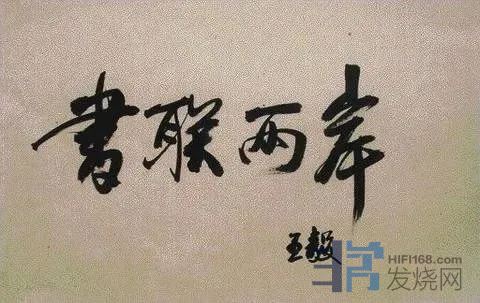 書联两岸
王毅
HIFI168.com
发烧网